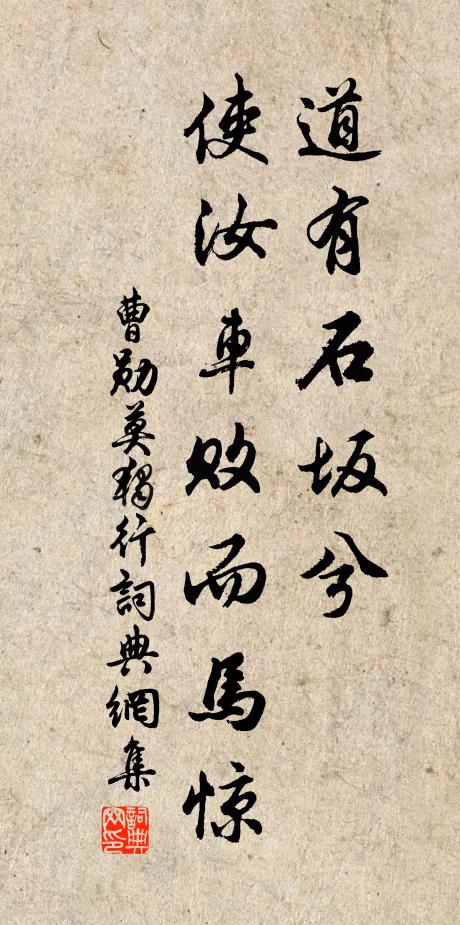 道有石坂兮
使汝車敗而馬惊
曹勛莫獨行詞典網集
詞典网印